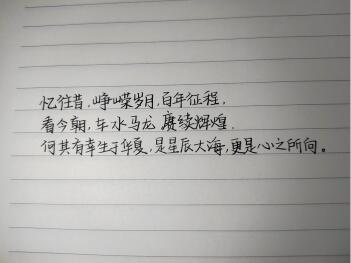 忆往昔,峥嵘岁月,百年征程,
看今朝,车水马龙 赓续辉煌,
何其有幸生于华夏,是星辰大海,更是心之所向。